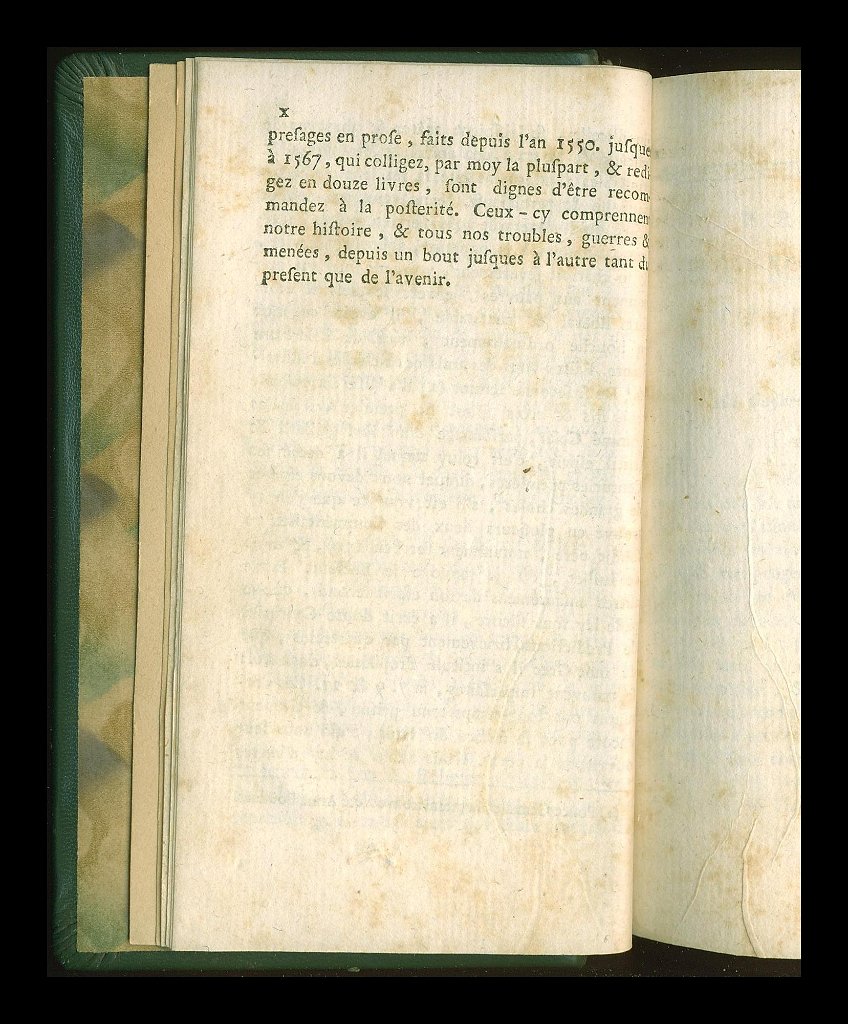 x
preſages en proſe, faits depuis l'an 1550. juſque
à 1567, qui colligez, par moy la pluſpart, & redi
gez en douze livres, ſont dignes d'être recom-
mandez à la poſterité. Ceux-cy comprennen
notre hiſtoire, & tous nos troubles, guerres &
menées, depuis un bout juſques à l'autre tant du
preſent que de l'avenir.